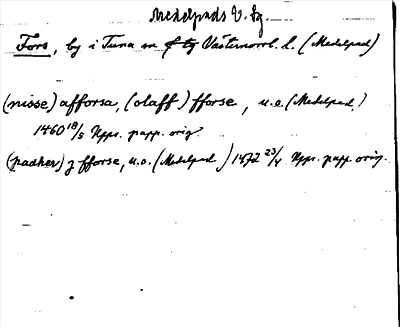 Medelpads V. tg.
Fors, by i Tuna sn Västernorrl. l. (Medelpad)
(nisse) afforsa, (olaff) fforse, u.o. (Medelpad,)
1460 18/5 Upps. papp. orig.
(padher) z fforse, u.o. (Medelpad) 1472 23/4 Upps. papp. orig.